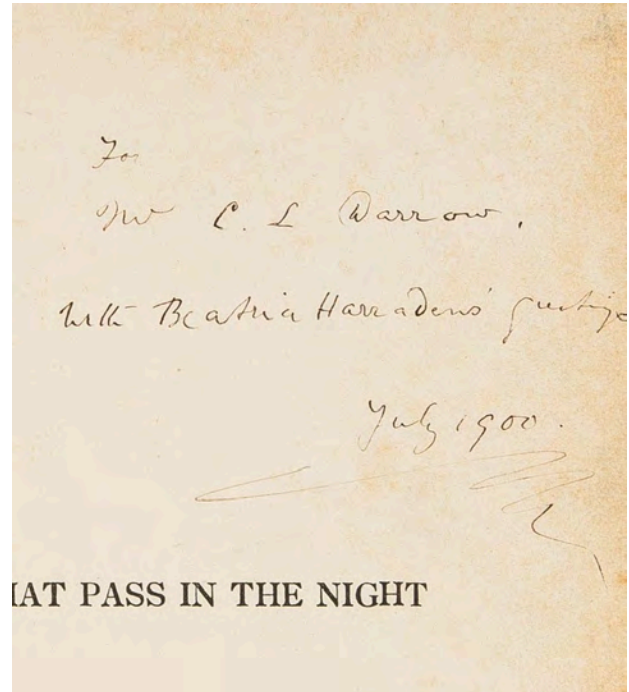 For
Mr C. L Darrow,
With Beatrice Harraden's greetings
July 1900.
HAT PASS IN THE NIGHT